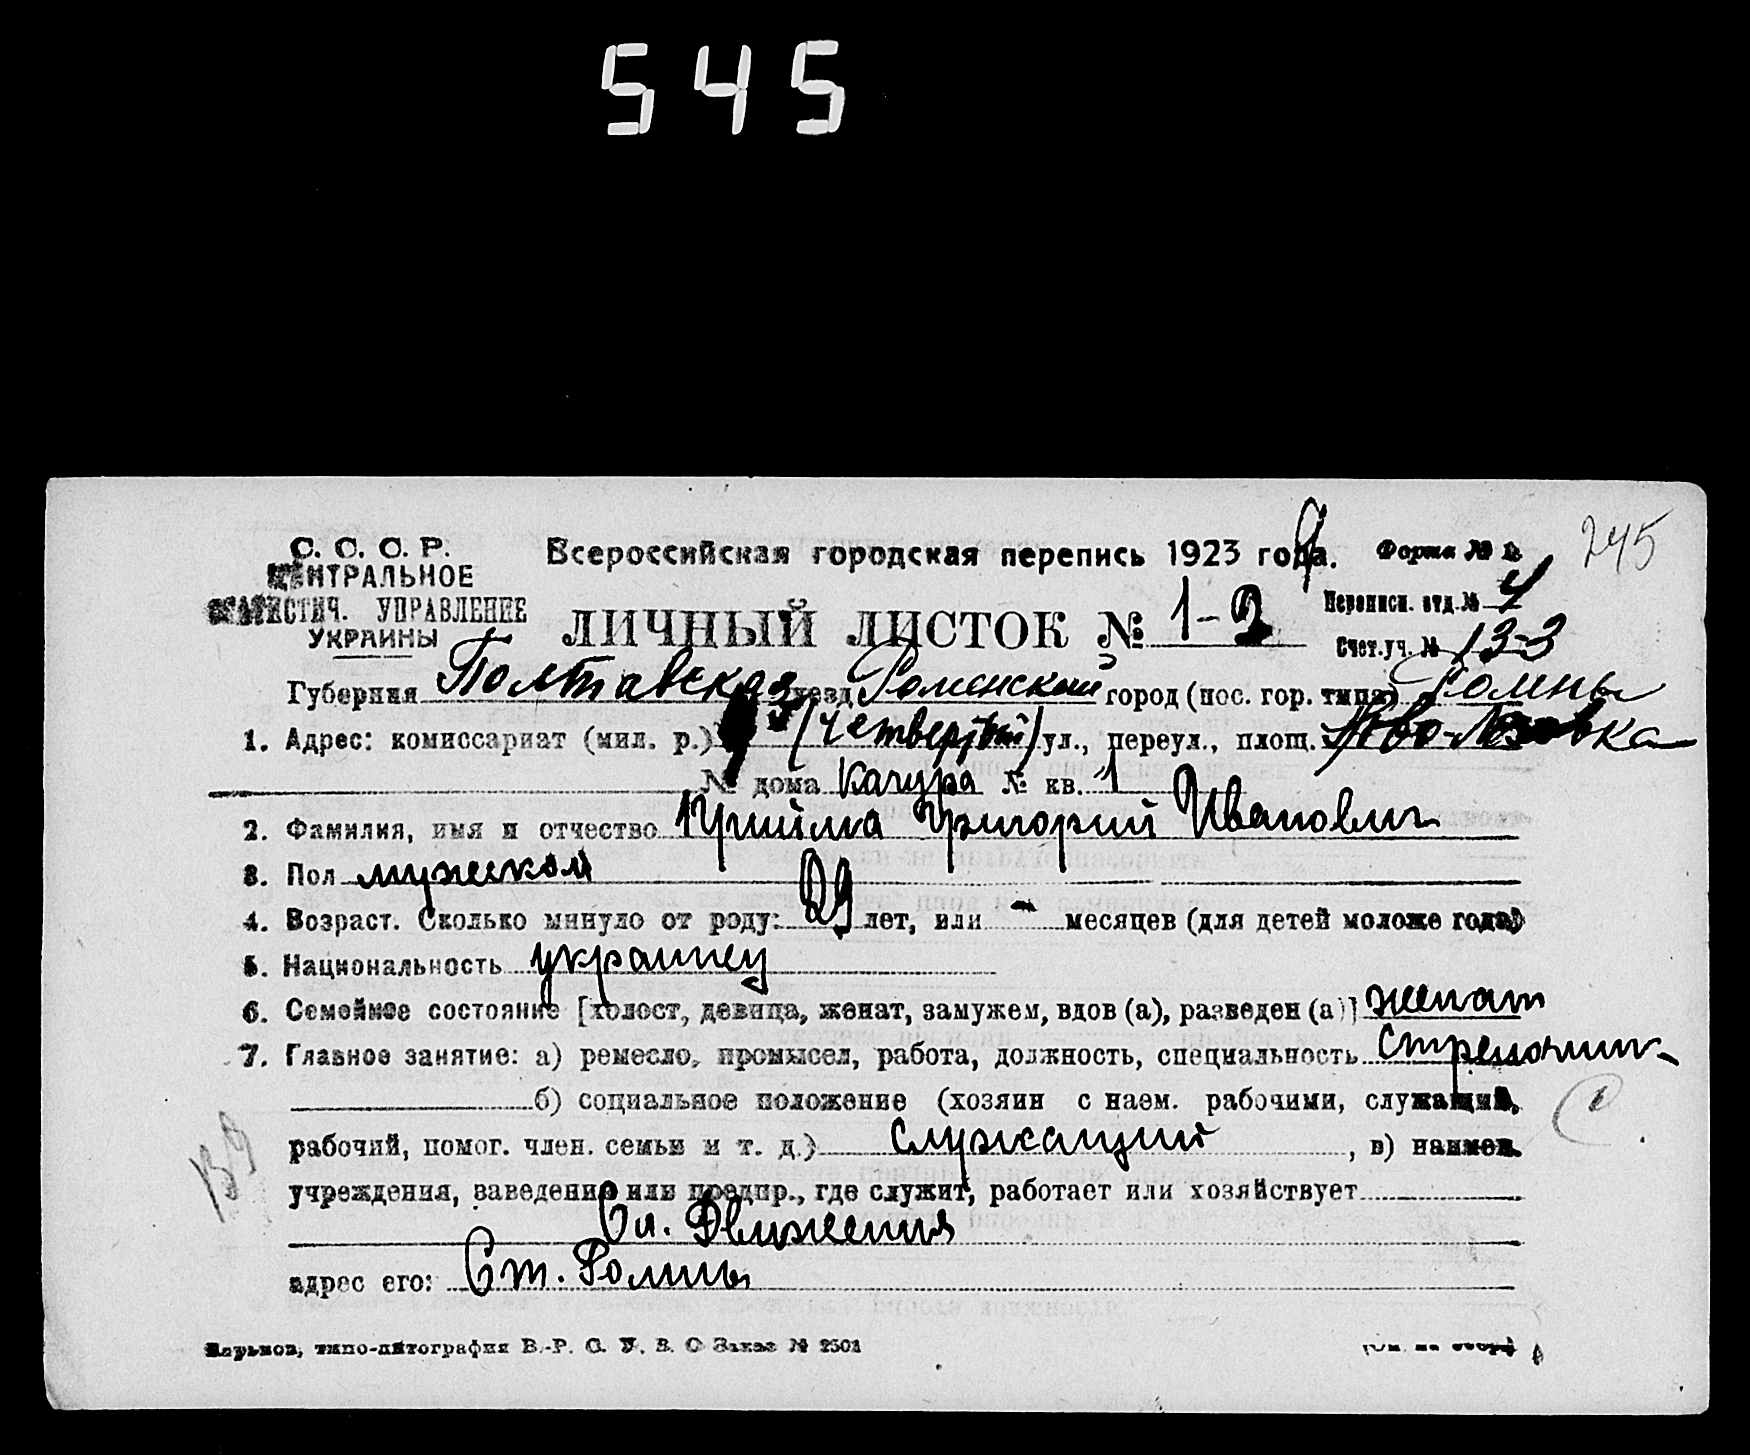 545
С. С. С. Р. Всероссийская городская перепись 1923 года. Форма №
245
ЦЕНТРАЛЬНОЕ
СТАТИСТИЧ. УПРАВЛЕНИЕ
УКРАИНЫ
ЛИЧНЫЙ ЛИСТОК № 1-2
Переписн. отд. № 4
Счет. уч. № 13-3
Губерния Полтавская уезд Роменский город (пос. гор. типа) Ромны
1. Адрес: комиссариат (мил. р.) (четвертый) ул., переул., площ.
№ дома Качура № кв. 1
2. Фамилия, имя и отчество Григорий Иванович
3. Пол мужской
4. Возраст. Сколько минуло от роду: 29 лет, или – месяцев (для детей моложе года)
5. Национальность украинец
6. Семейное состояние [холост, девица, женат, замужем, вдов (а), разведен (а)] женат
7. Главное занятие: а) ремесло, промысел, работа, должность, специальность Стрелочник
б) социальное положение (хозяин с наем. рабочими, служащий,
рабочий, помог. член. семьи и т. д.) Служащий, в) наимен.
учреждения, заведения или предпр., где служит, работает или хозяйствует
Сл. Движения
адрес его: Ст. Ромны
Харьков, типо-литография В.-Р. С. У. В. О Заказ № 2501